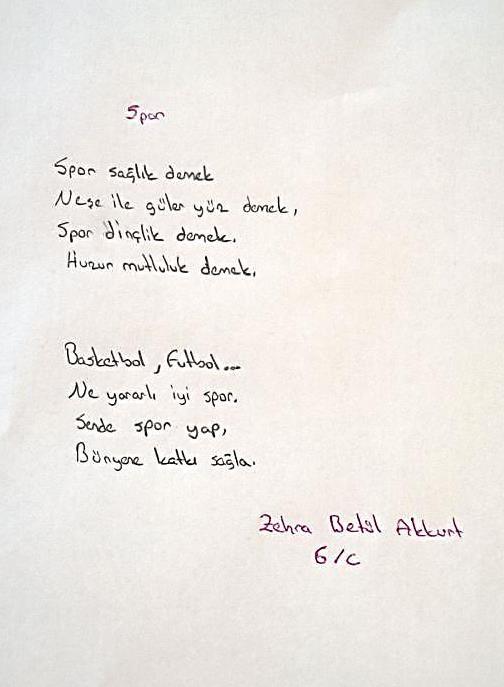 Spor
Spor sağlık demek
Neşe ile güler yüz demek,
Spor dinçlik demek.
Huzur mutluluk demek.
Basketbol, Futbol...
Ne yararlı iyi spor.
Sende spor yap,
Bünyene katkı sağla.
Zehra Betül Akkurt
6/C